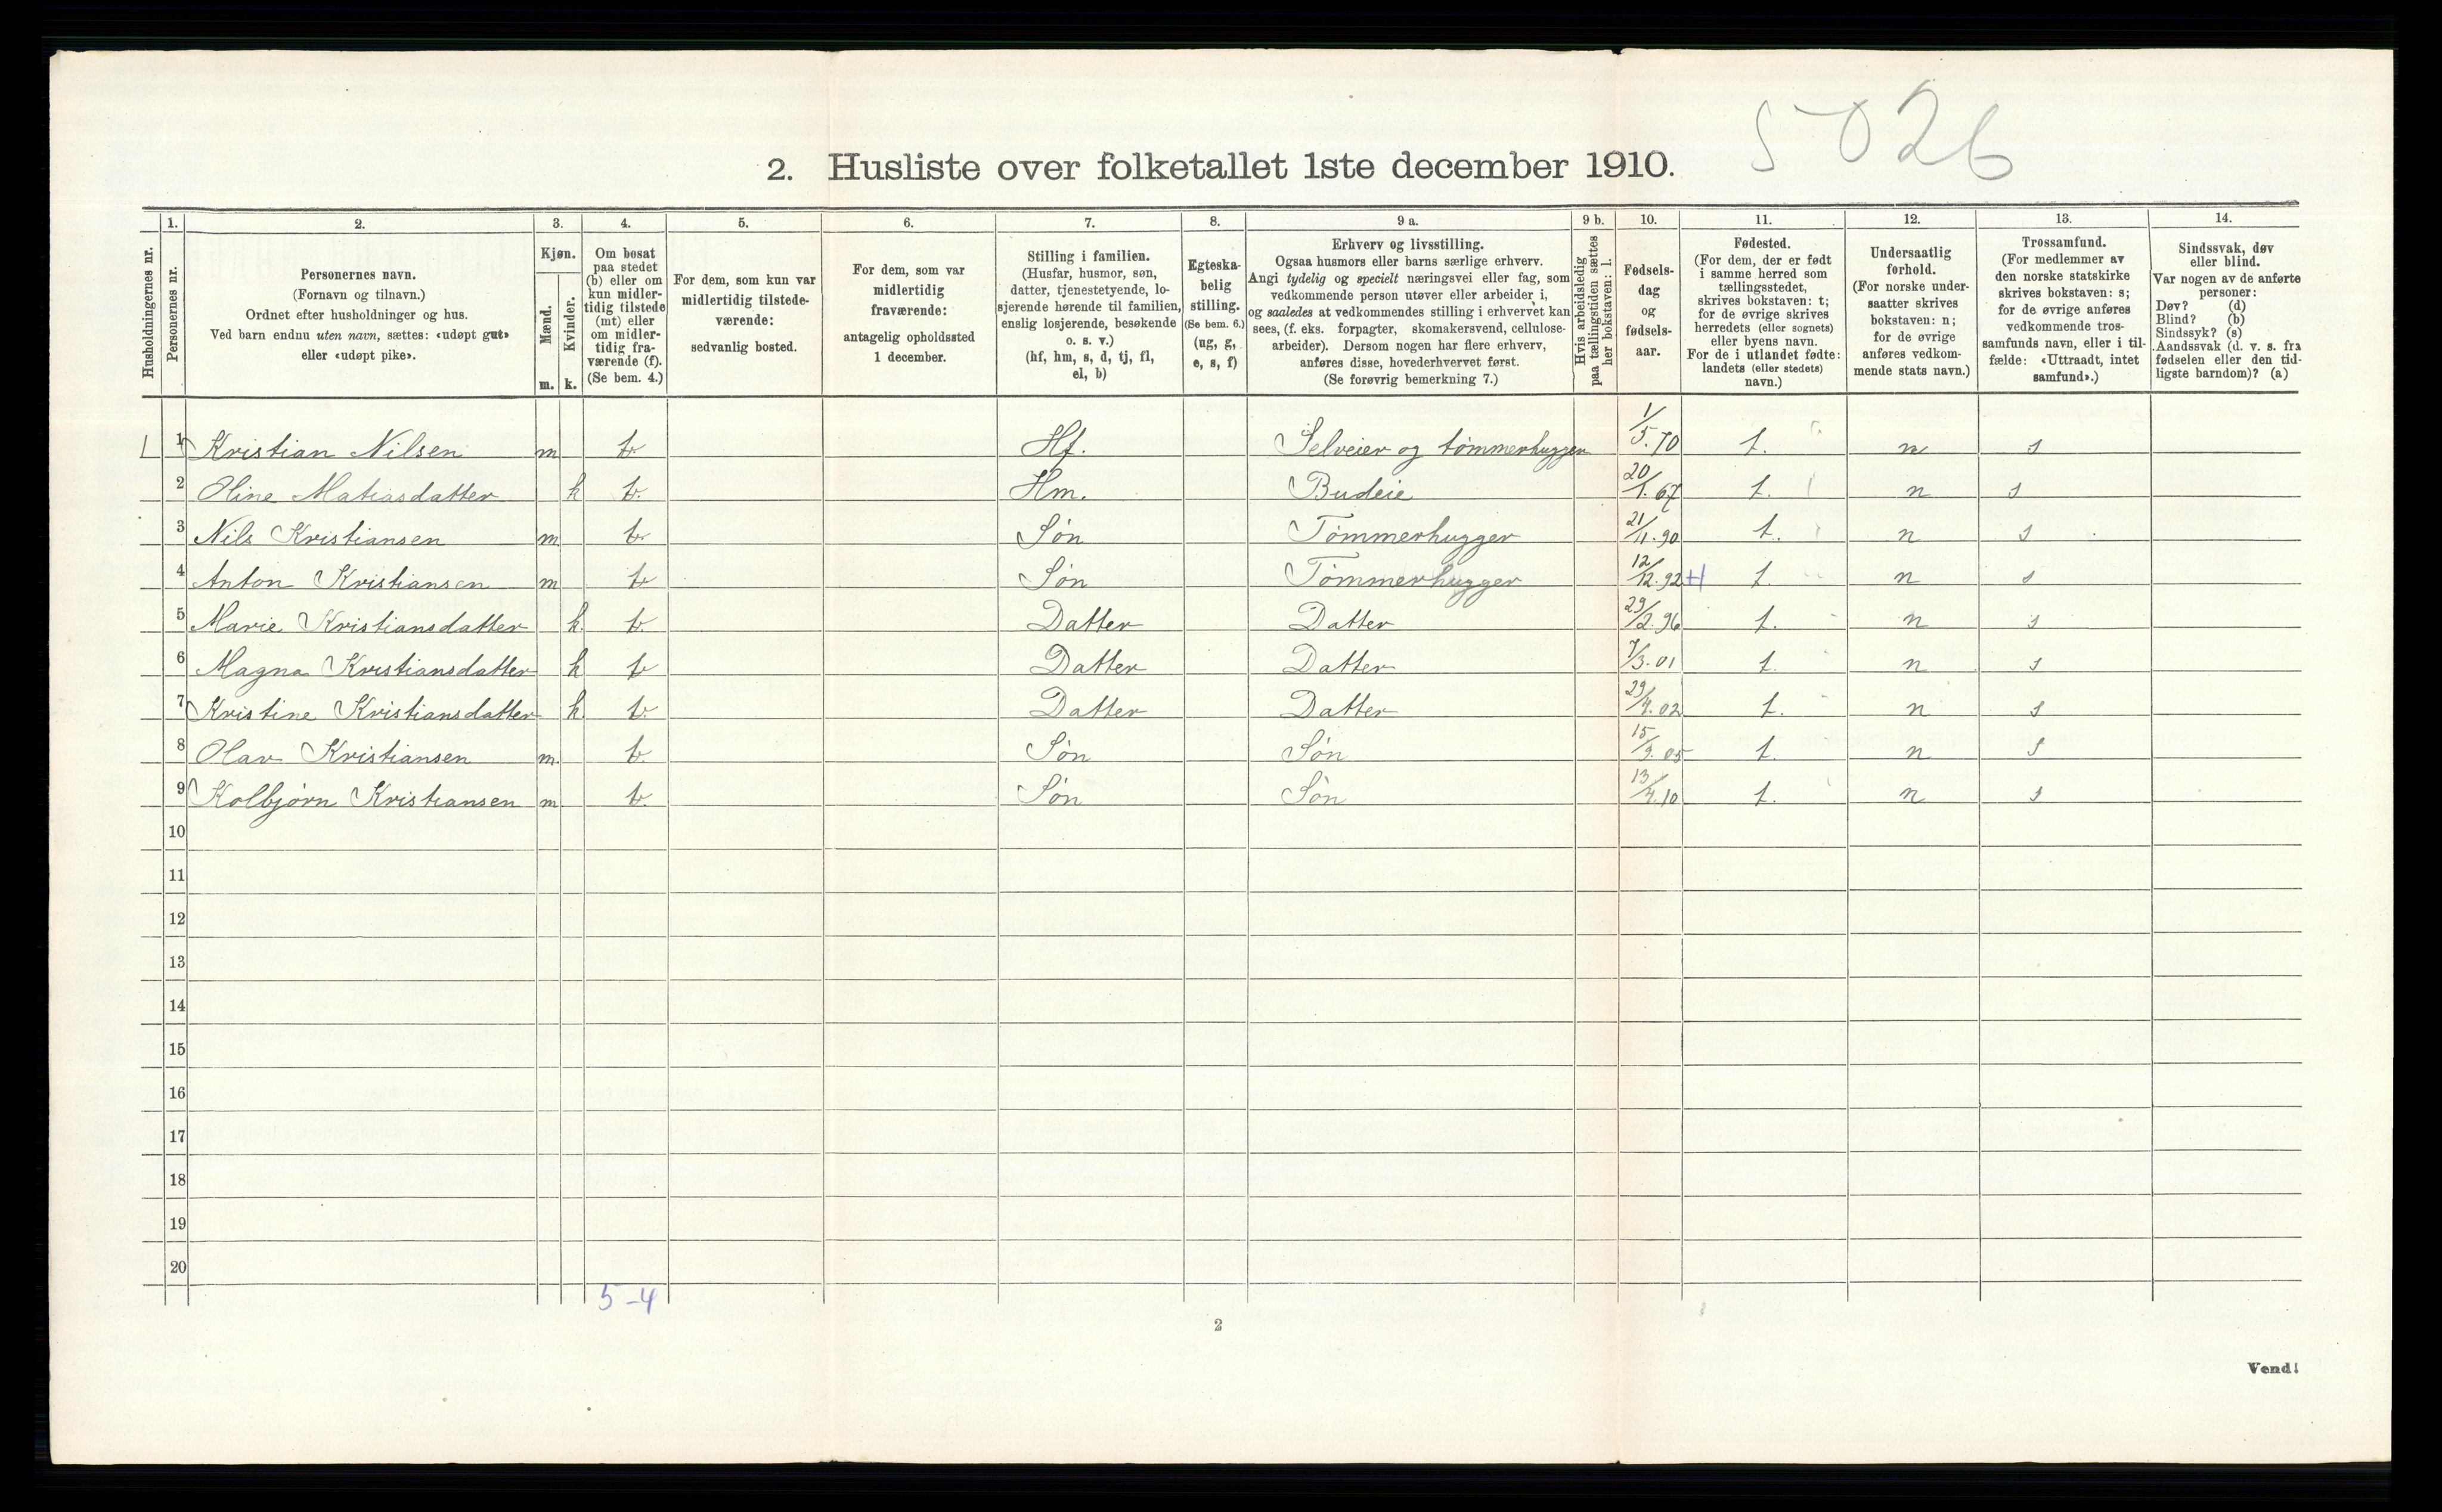 5026
2. Husliste over folketallet 1ste december 1910.
Husholdningernes nr.
1.
Personernes nr.
2.
Personernes navn.
(Fornavn og tilnavn.)
Ordnet efter husholdninger og hus.
Ved barn endnu uten navn, sættes: «udøpt gut»
eller «udøpt pike».
3.
Kjøn.
Mænd.
Kvinder.
m. k.
4.
Om bosat
paa stedet
(b) eller om
kun midler-
tidig tilstede
(mt) eller
om midler-
tidig fra-
værende (f).
(Se bem. 4.)
5.
For dem, som kun var
midlertidig tilstede-
værende:
sedvanlig bosted.
6.
For dem, som var
midlertidig
fraværende:
antagelig opholdssted
1 december.
7.
Stilling i familien.
(Husfar, husmor, søn,
datter, tjenestetyende, lo-
sjerende hørende til familien,
enslig losjerende, besøkende
o. s. v.)
(hf, hm, s, d, tj, fl,
el, b)
8.
Egteska-
belig
stilling.
(Se bem. 6.)
(ug, g,
e, s, f)
9 a.
Erhverv og livsstilling.
Ogsaa husmors eller barns særlige erhverv.
Angi tydelig og specielt næringsvei eller fag, som
vedkommende person utøver eller arbeider i,
og saaledes at vedkommendes stilling i erhvervet kan
sees, (f. eks. forpagter, skomakersvend, cellulose-
arbeider). Dersom nogen har flere erhverv,
anføres disse, hovederhvervet først.
(Se forøvrig bemerkning 7.)
9 b.
Hvis arbeidsledig
paa tællingstiden sættes
her bokstaven: l.
10.
Fødsels-
dag
og
fødsels-
aar.
11.
Fødested.
(For dem, der er født
i samme herred som
tællingsstedet,
skrives bokstaven: t;
for de øvrige skrives
herredets (eller sognets)
eller byens navn.
For de i utlandet fødte:
landets (eller stedets)
navn.)
12.
Undersaatlig
forhold.
(For norske under-
saatter skrives
bokstaven: n;
for de øvrige
anføres vedkom-
mende stats navn.)
13.
Trossamfund.
(For medlemmer av
den norske statskirke
skrives bokstaven: s;
for de øvrige anføres
vedkommende tros-
samfunds navn, eller i til-
fælde: «Uttraadt, intet
samfund».)
14.
Sindssvak, døv
eller blind.
Var nogen av de anførte
personer:
Døv? (d)
Blind? (b)
Sindssyk? (s)
Aandssvak (d. v. s. fra
fødselen eller den tid-
ligste barndom)? (a)
1 1 Kristian Nilsen m b. Hf. Selveier og tömmerhugger 1/5.70 t. n s
2 Oline Matiasdatter k b. Hm. Budeie 20/1.67 t. n s
3 Nils Kristiansen m b. Søn Tømmerhugger 21/11.90 t. n s
4 Anton Kristiansen m b Søn Tømmerhugger 12/12.92 t. n s
5 Marie Kristiansdatter k. b. Datter Datter 29/2.96 t. n s
6 Magna Kristiansdatter k b Datter Datter 7/3.01 t. n s
7 Kristine Kristiansdatter k. b. Datter Datter 29/4.02 t. n s
8 Olav Kristiansen m. b. Søn Søn 15/9.05 t. n s
9 Kolbjørn Kristiansen m b. Søn Søn 13/4.10 t. n s
10
11
12
13
14
15
16
17
18
19
20
5-4
2
Vend!